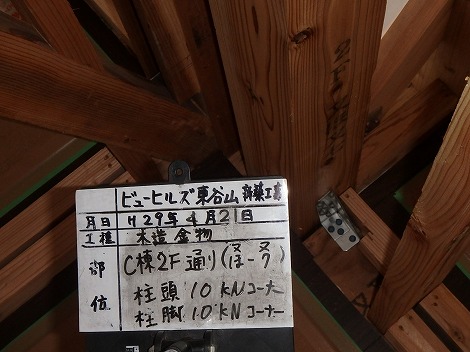 ビューヒルズ東谷山 新築工事
月日 H29年4月21日
工種 木造金物
部位 C棟2F通り(
柱頭 10KNコーナー
柱脚 10KNコーナー